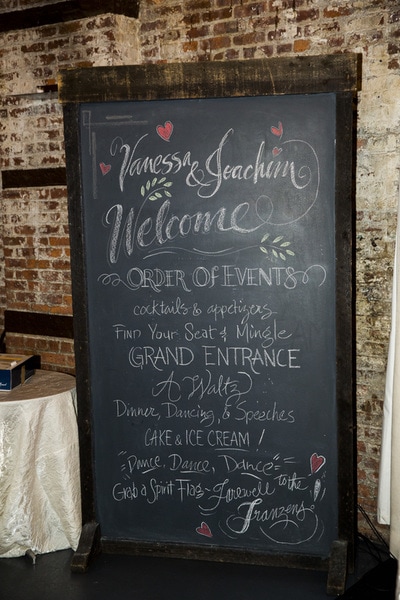 Vanessa & Joachim
Welcome
ORDER OF EVENTS
cocktails & appetizers
FIND YOUR SEAT & MINGLE
GRAND ENTRANCE
A Waltz
Dinner, Dancing, & Speeches
CAKE & ICE CREAM!
"Dance, Dance, Dance"
Grab a Spirit Flag ~ Farewell to the
Franzens